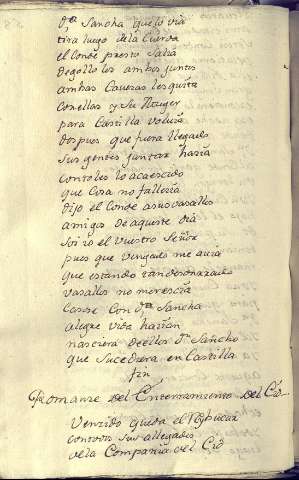 Dª Sancha que lo via
tira luego dela Cuerda
el Conde presto Salia
degollo los ambos juntos
ambas Cavezas les quita
con ellas y Su Muger
para Castilla volvia
despues que fuera llegado
Sus gentes juntar hazia
contoles lo acaescido
que Cosa no fallesia
Dijo el Conde asus vasallos
amigos de aqueste dia
Soi io el Vuestro Señor
pues que Vengado me avia
que estando tan desonrrado
vasallos no merescia
Casose Con Dª Sancha
alegre vida hazian
nasciera de ellos Dn Sancho
que Sucediera en Castilla
fin
Romanze del Enterramiento del Cid
Venzido queda el Rey Bucar
con todos Sus allegados
de la Compañia del Cid